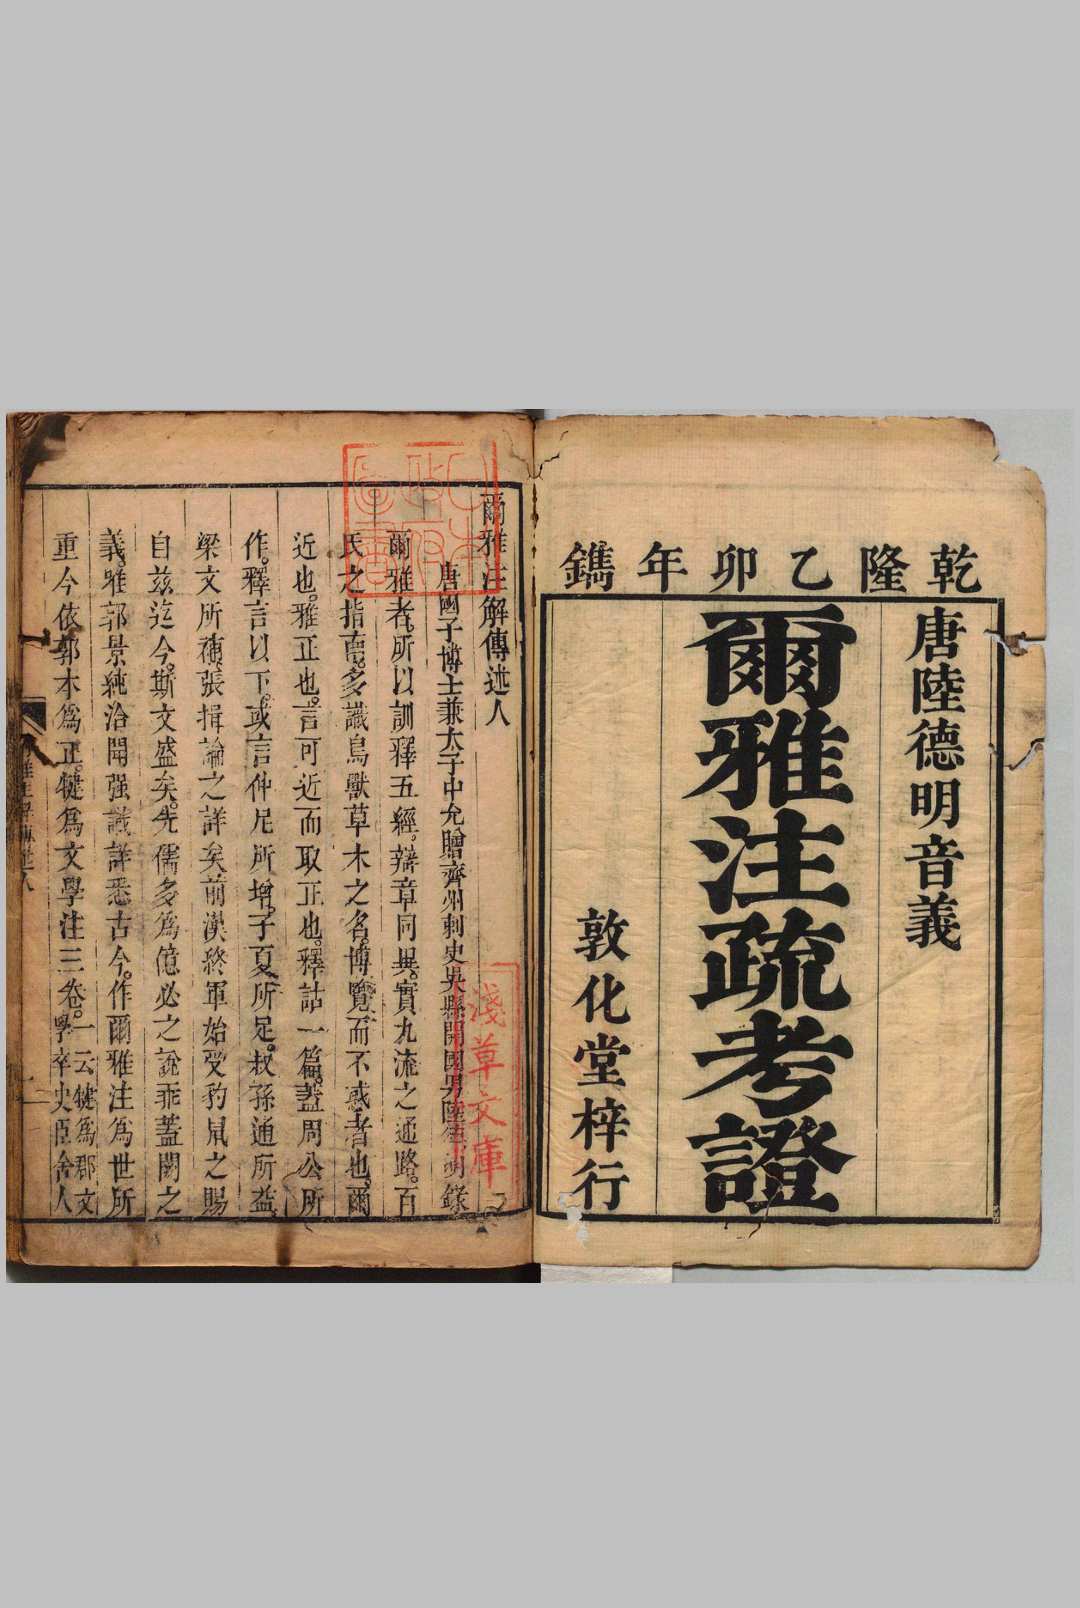 乾隆乙卯年鐫
唐陸德明音義
爾雅注疏考證
敦化堂梓行
爾雅注解傳述人
唐國子博士兼太子中允贈齊州刺史吳縣開國男陸德明錄
爾雅者。所以訓釋五經。辯章同異。實九流之通路。百
氏之指南。多識鳥獸草木之名。博覽而不惑者也。爾
近也。雅正也。言可近而取正也。釋詁一篇。蓋周公所
作。釋言以下。或言仲尼所增。子夏所足。叔孫通所益。
梁文所補。張揖論之詳矣前漢終軍始受豹鼠之賜
自茲迄今。斯文盛矣。先儒多爲億必之說乖蓋闕之
義。雅郭景純洽聞强識詳悉古今。作爾雅注爲世所
重今依郭本爲正。犍爲文學注三卷。一云犍爲郡文
學卒史臣舍人
淺草文庫